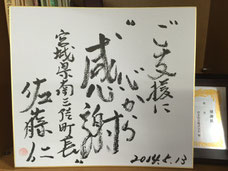 ご支援に
心から
“感謝”
宮城県南三陸町長
佐藤仁
2014.5.13